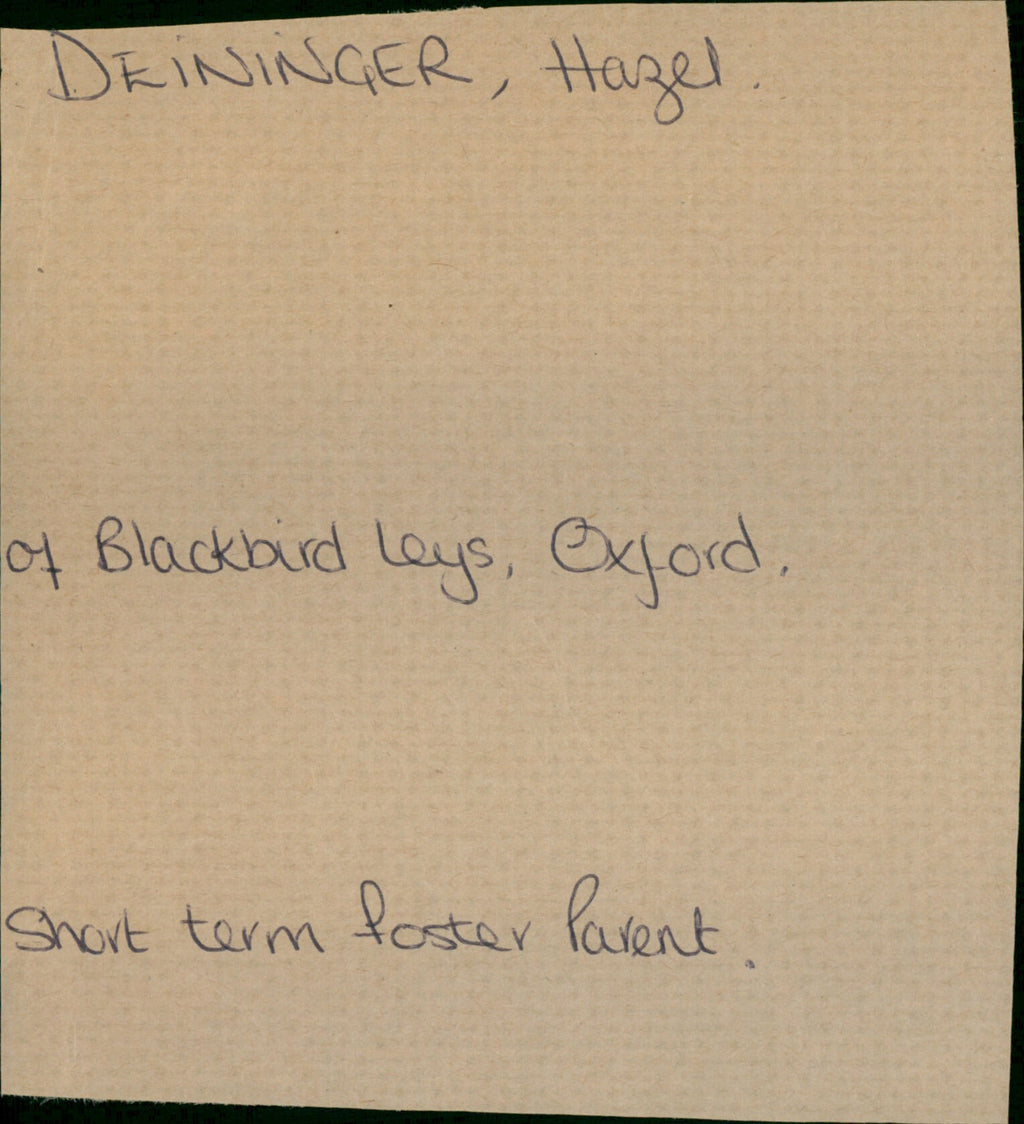 DEININGER, Hazel.
of Blackbird Leys, Oxford.
Short term foster Parent.